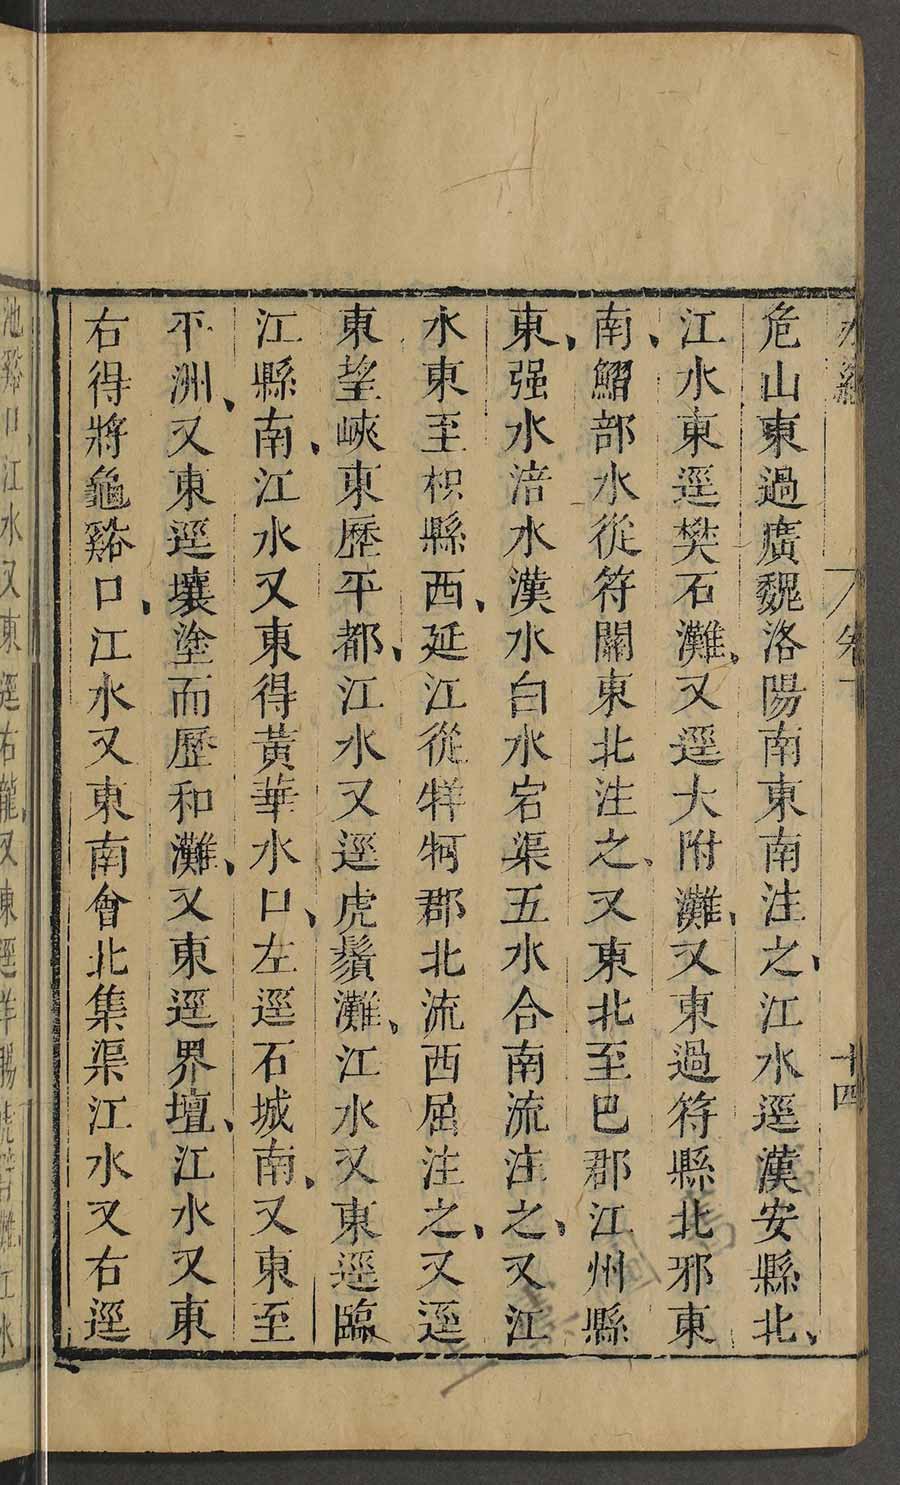 水經 卷下 十四
危山東過廣魏洛陽南東南注之、江水逕漢安縣北、
江水東逕樊石灘、又逕大附灘、又東過符縣北邪東
南、鰼部水從符關東北注之、又東北至巴郡江州縣
東、强水涪水漢水白水宕渠五水合南流注之、又江
水東至枳縣西、延江從牂牁郡北流西屈注之、又逕
東望峽東歷平都、江水又逕虎鬚灘、江水又東逕臨
江縣南、江水又東得黃華水口、左逕石城南、又東至
平洲、又東逕壤塗而歷和灘、又東逕界壇、江水又東
右得將龜谿口、江水又東南會北集渠江水又右逕
池谿口、江水又東逕右龍又東逕羊腸虎臂灘江水